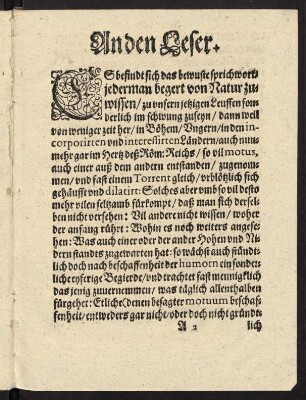 An den Leser.
ES befindt sich das bewuste sprichwort/
jederman begert von Natur zu
wissen/ zu unsern jetzigen Leuffen son-
derlich im schwung zuseyn/ dann weil
von weniger zeit her/ in Böhem/ Ungern/ in den in-
corporirten und interessirten Ländern/ auch nun-
mehr gar im Hertz deß Röm: Reichs/ so vil motus,
auch einer auß dem andern entstanden/ zugenom-
men/ und fast einem Torrent gleich/ urblötzlich sich
gehäufft und dilatirt: Solches aber umb so vil desto
mehr vilen seltzamb fürkompt/ daß man sich dersel-
ben nicht versehen: Vil andere nicht wissen/ woher
der anfang rührt: Wohin es noch weiters angese-
hen: Was auch einer oder der ander Hohen und Ni-
dern standts zugewarten hat: so wächst auch ständt-
lich doch nach beschaffenheit der humorn ein sonder-
liche eyferige Begierde/ und trachtet fast menniglich
das jenig zuvernemmen/ was täglich allenthalben
fürgehet: Etliche (denen besagter motuum beschaf-
fenheit/ entweders gar nicht/ oder doch nicht gründt-
A 2 lich